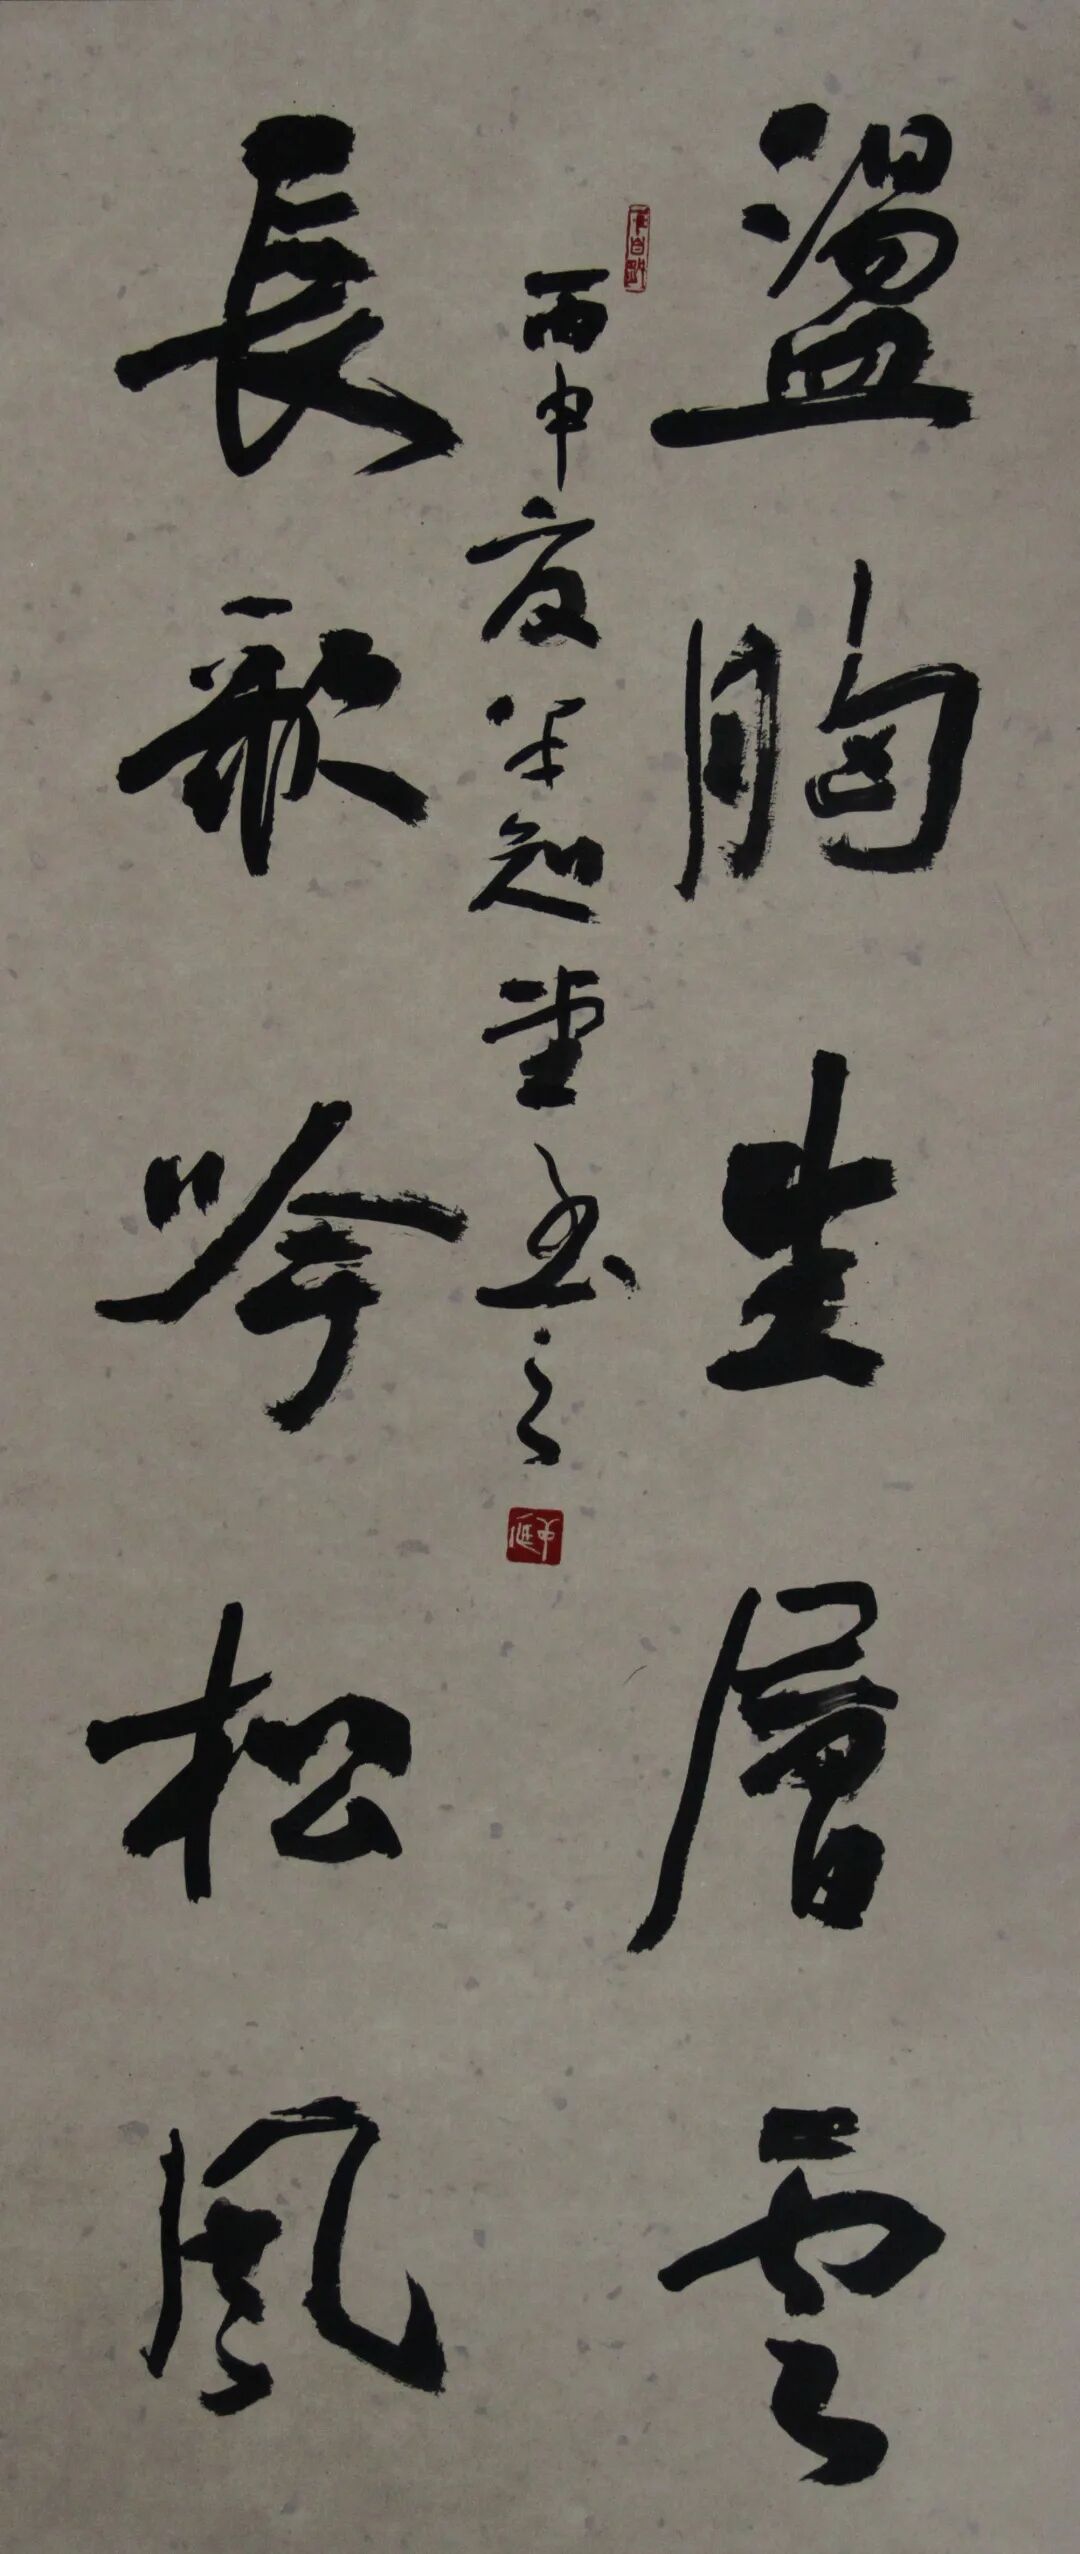 盪胸生層雲
長歌吟松風
丙申夏半知堂書之